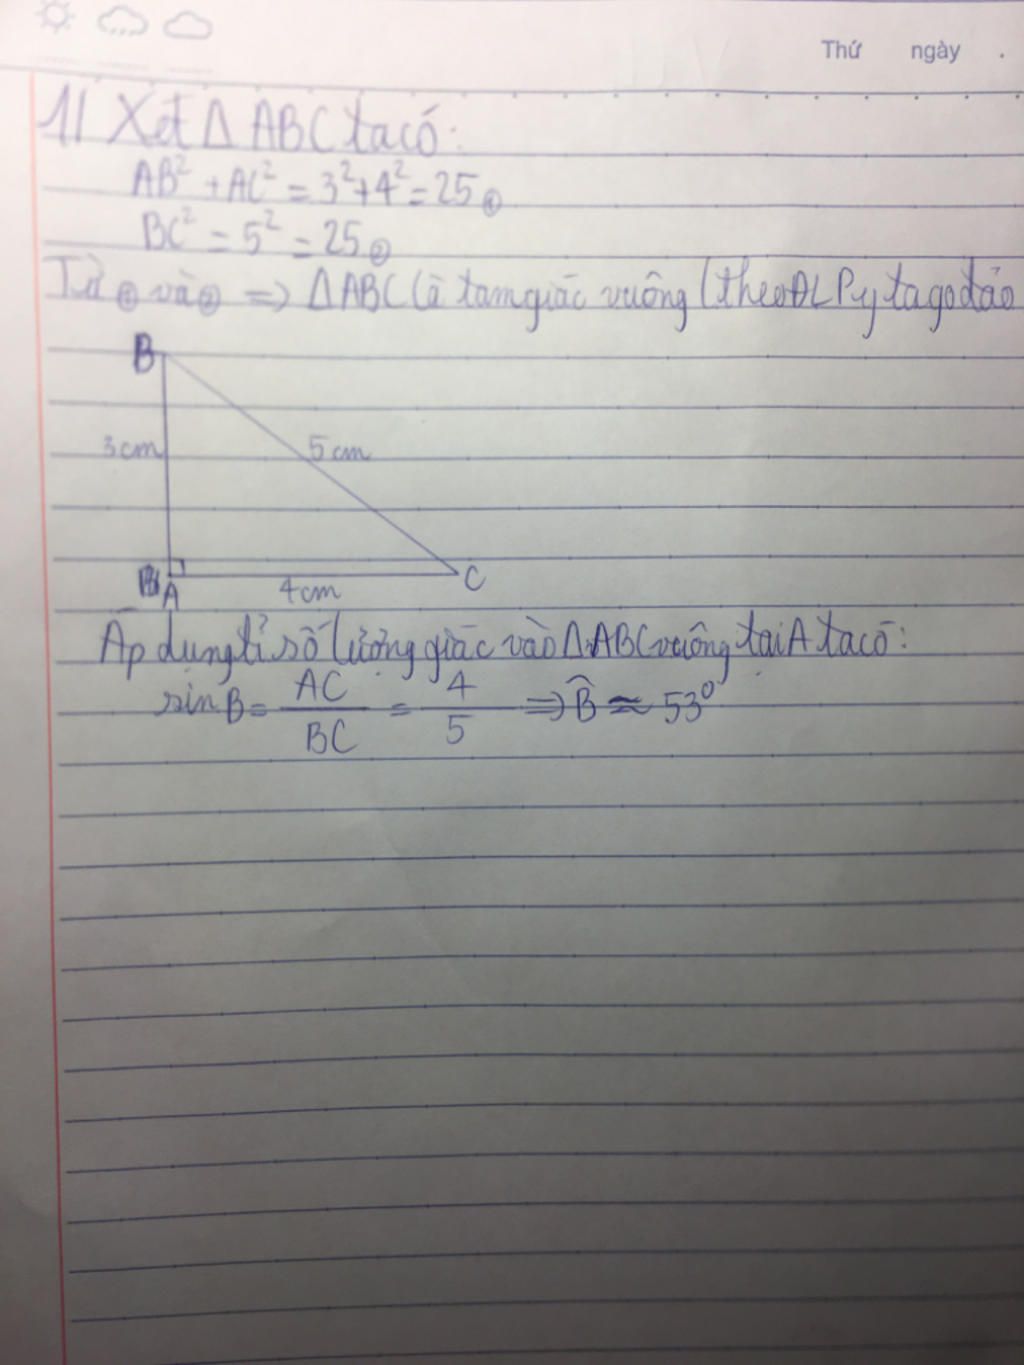 Thứ ngày .
1/ Xét Δ ABC ta có:
AB² + AC² = 3² + 4² = 25 ①
BC² = 5² = 25 ②
Từ ① và ② => ΔABC là tam giác vuông (theo ĐL Pytago đảo
B
3cm
5cm
A
4cm
C
Áp dụng tỉ số lượng giác vào Δ ABC vuông tại A ta có:
sin B = AC/BC = 4/5 => B̂ ≈ 53⁰